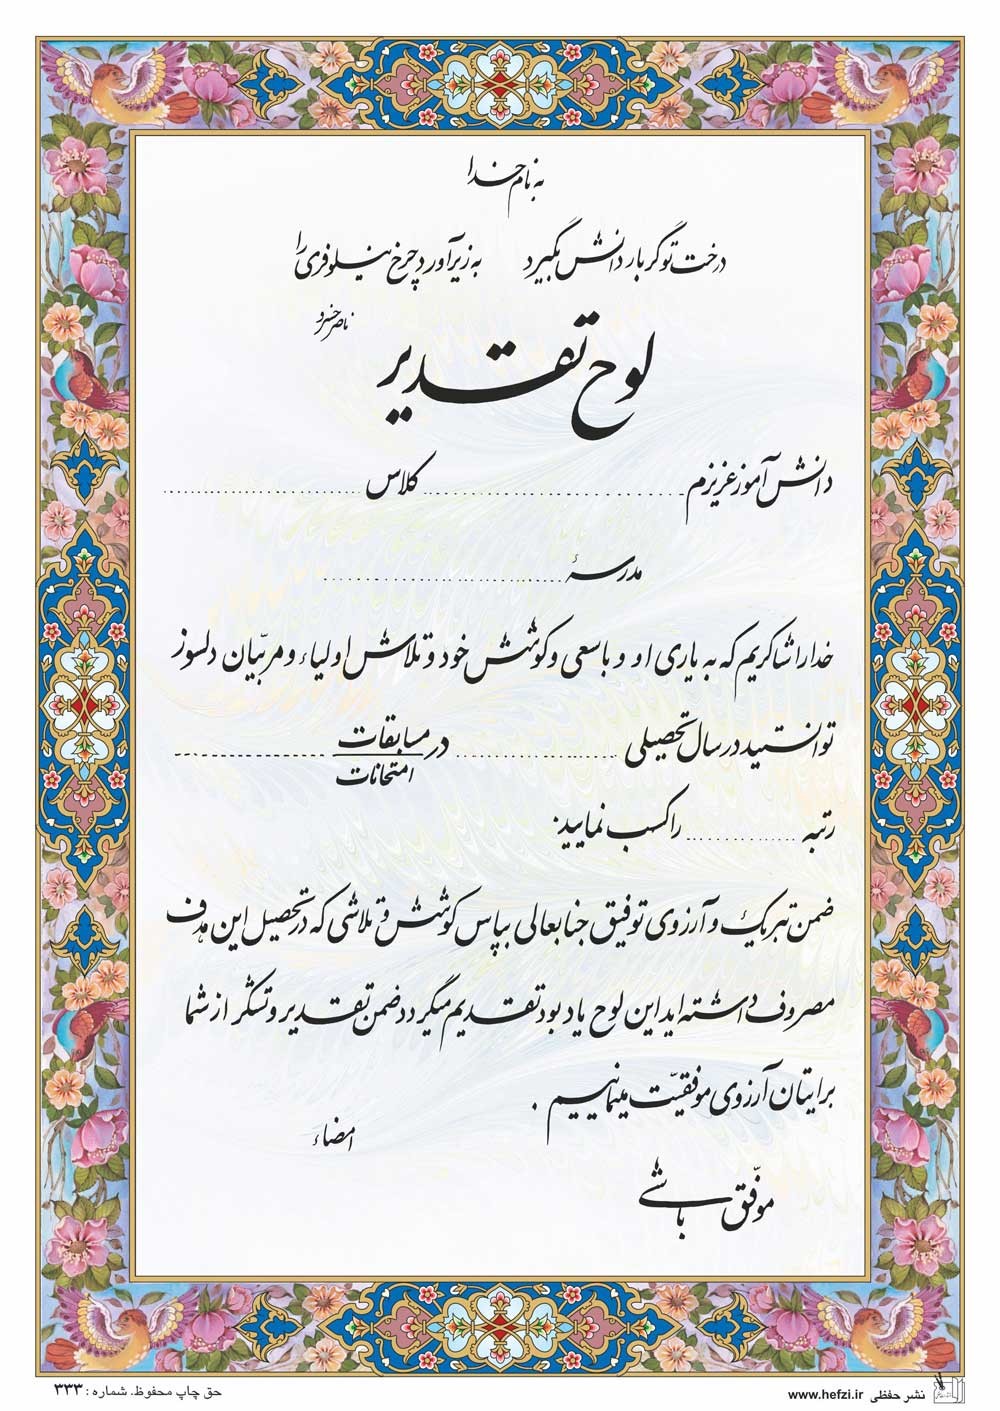 به نام خدا
درخت تو گر بار دانش بگیرد به زیر آورد چرخ نیلوفری را
ناصر خسرو
لوح تقدیر
دانش آموز عزیزم ........................ کلاس ........................
مدرسهٔ ........................
خدا را شاکریم که به یاری او و با سعی و کوشش خود و تلاش اولیاء و مربّیان دلسوز
توانستید در سال تحصیلی ........................ در مسابقات ------------------
امتحانات
رتبه ............ را کسب نمایید.
ضمن تبریک و آرزوی توفیق جنابعالی بپاس کوشش و تلاشی که در تحصیل این هدف
مصروف داشته اید این لوح یادبود تقدیم میگردد ضمن تقدیر و تشکر از شما
برایتان آرزوی موفقیّت مینمائیم .
امضاء
موفّق باشی
نشر حفظی www.hefzi.ir
حق چاپ محفوظ. شماره : ۳۳۳